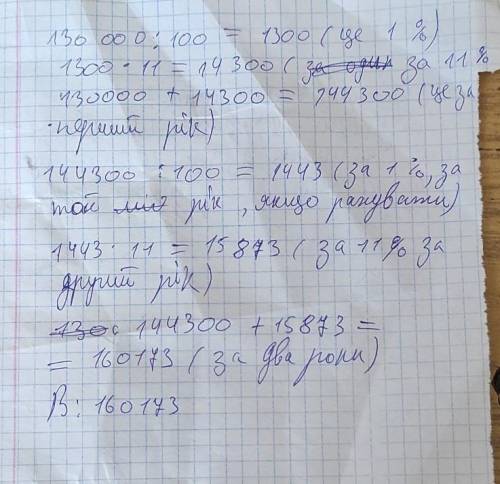 130 000 : 100 = 1300 (це 1 %)
1300 · 11 = 14 300 (за один за 11 %
130000 + 14300 = 144300 (це за
перший рік)
144300 : 100 = 1443 (за 1 %, за
той рік, якщо рахувати)
1443 · 11 = 15873 (за 11% за
другий рік)
130 144300 + 15873 =
= 160173 (за два роки)
В: 160173